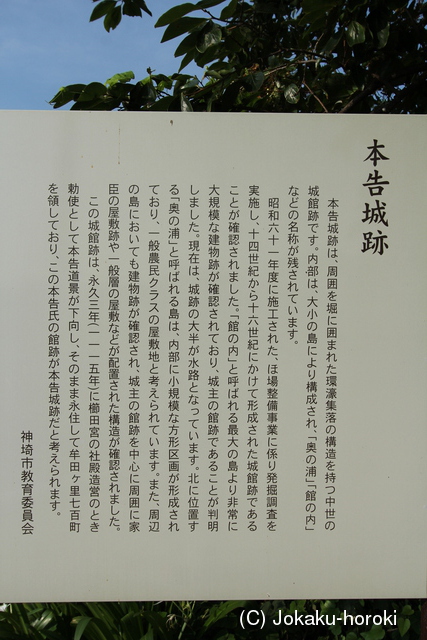 本告城跡
本告城跡は、周囲を堀に囲まれた環濠集落の構造を持つ中世の
城館跡です。内部は、大小の島により構成され、「奥の浦」「館の内」
などの名称が残されています。
昭和六十一年度に施工された、ほ場整備事業に係り発掘調査を
実施し、十四世紀から十六世紀にかけて形成された城館跡である
ことが確認されました。「館の内」と呼ばれる最大の島より非常に
大規模な建物跡が確認されており、城主の館跡であることが判明
しました。現在は、城跡の大半が水路となっています。北に位置す
る「奥の浦」と呼ばれる島は、内部に小規模な方形区画が形成され
ており、一般農民クラスの屋敷地と考えられています。また、周辺
の島においても建物跡が確認され、城主の館跡を中心に周囲に家
臣の屋敷跡や一般層の屋敷などが配置された構造が確認されました。
この城館跡は、永久三年(一一一五年)に櫛田宮の社殿造営のとき
勅使として本告道景が下向し、そのまま永住して牟田ヶ里七百町
を領しており、この本告氏の館跡が本告城跡だと考えられます。
神埼市教育委員会
(C) Jokaku-horoki